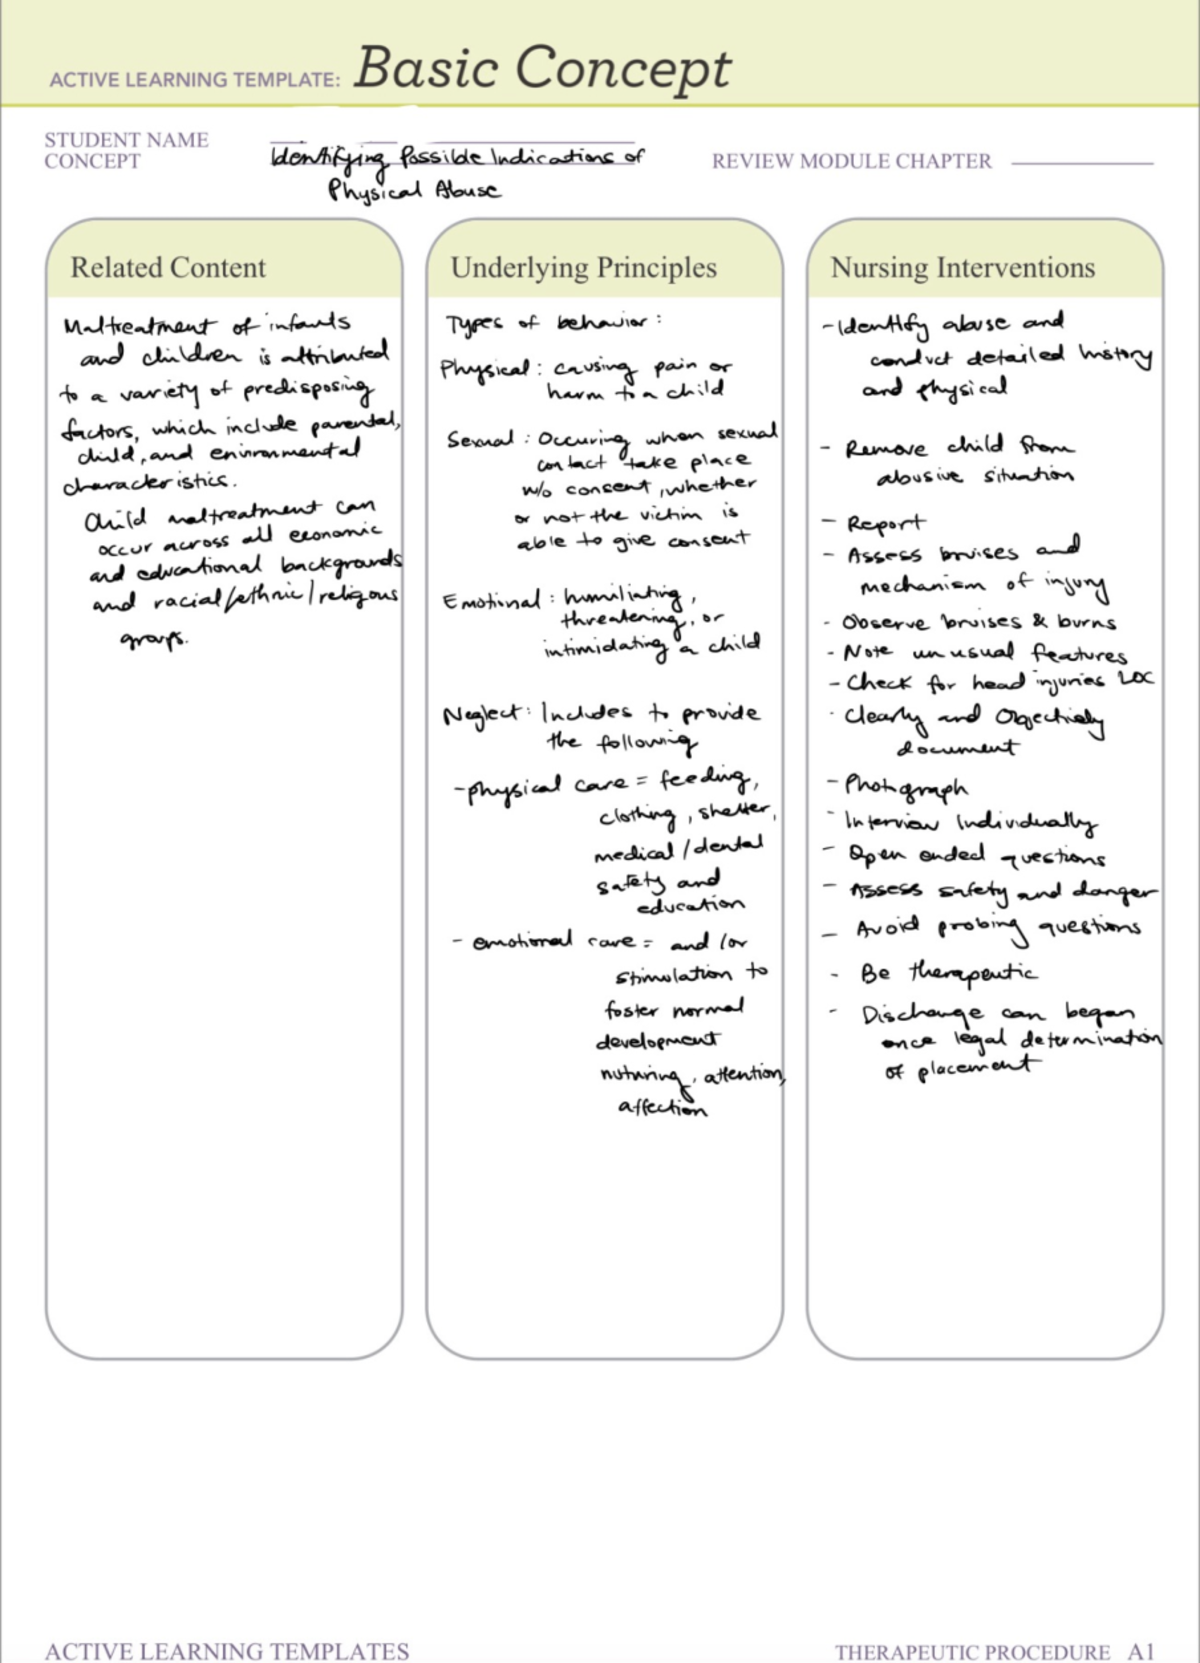 ACTIVE LEARNING TEMPLATE: Basic Concept
STUDENT NAME
CONCEPT
Identifying Possible Indications of
Physical Abuse
REVIEW MODULE CHAPTER
Related Content
Maltreatment of infants
and children is attributed
to a variety of predisposing
factors, which include parental,
child, and environmental
characteristics.
Child maltreatment can
occur across all economic
and educational backgrounds
and racial/ethnic/religous
groups.
Underlying Principles
Types of behavior:
Physical: causing pain or
harm to a child
Sexual: Occuring when sexual
contact take place
w/o consent, whether
or not the victim is
able to give consent
Emotional: humiliating,
threatening, or
intimidating a child
Neglect: Includes to provide
the following
-physical care = feeding,
clothing, shelter,
medical/dental
safety and
education
- emotional care = and/or
stimulation to
foster normal
development
nuturing, attention,
affection
Nursing Interventions
-Identify abuse and
conduct detailed history
and physical
- Remove child from
abusive situation
- Report
- Assess bruises and
mechanism of injury
- Observe bruises & burns
- Note unusual features
- Check for head injuries LOC
- Clearly and Objectively
document
- Photograph
- Interview Individually
- Open ended questions
- Assess safety and danger
- Avoid probing questions
- Be therapeutic
- Discharge can began
once legal determination
of placement
ACTIVE LEARNING TEMPLATES
THERAPEUTIC PROCEDURE A1